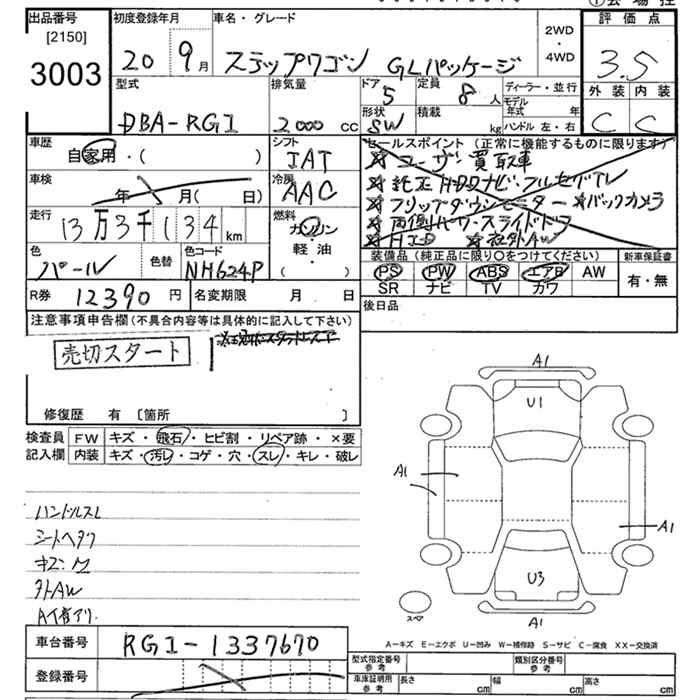 出品番号
[2150]
3003
初度登録年月
20 9月
車名・グレード
ステップワゴン GLパッケージ
2WD
・
4WD
評価点
3.5
外装 内装
C C
型式
DBA-RG1
排気量
2000 CC
ドア
5
定員
8人
形状
SW
積載
kg
ディーラー・並行
モデル
年式 年
ハンドル 左・右
車歴
自家用・( )
シフト
IAT
車検
年 月( 日)
冷房
AAC
走行
13万3千134 km
燃料
ガソリン
軽・油
( )
色
パール
色替
色コード
NH624P
R券 12390円
名変期限 月 日
セールスポイント(正常に機能するものに限ります)
☆ユーザー買取車
☆純正HDDナビ・フルセグTV
☆フリップダウンモニター ☆バックカメラ
☆両側パワースライドドア
☆HID ☆社外AW
装備品(純正品に限り○をつけてください)
PS PW ABS エアB AW
SR ナビ TV カワ
新車保証書
有・無
後日品
注意事項申告欄(不具合内容等は具体的に記入して下さい)
売切スタート
修復歴 有 [箇所 ]
検査員
記入欄
FW キズ・飛石・ヒビ割・リペア跡・×要
内装 キズ・汚レ・コゲ・穴・スレ・キレ・破レ
ハンドルスレ
シートヘタリ
キズ・凹
外AW
A1有り.
A1
U1
A1
A1
U3
A1
スペア
A-キズ E-エクボ U-凹み W-補修跡 S-サビ C-腐食 XX-交換済
車台番号
RG1-1337670
登録番号
型式指定番号
参考
類別区分番号
参考
車庫証明用
参考
長さ cm
幅 cm
高さ cm